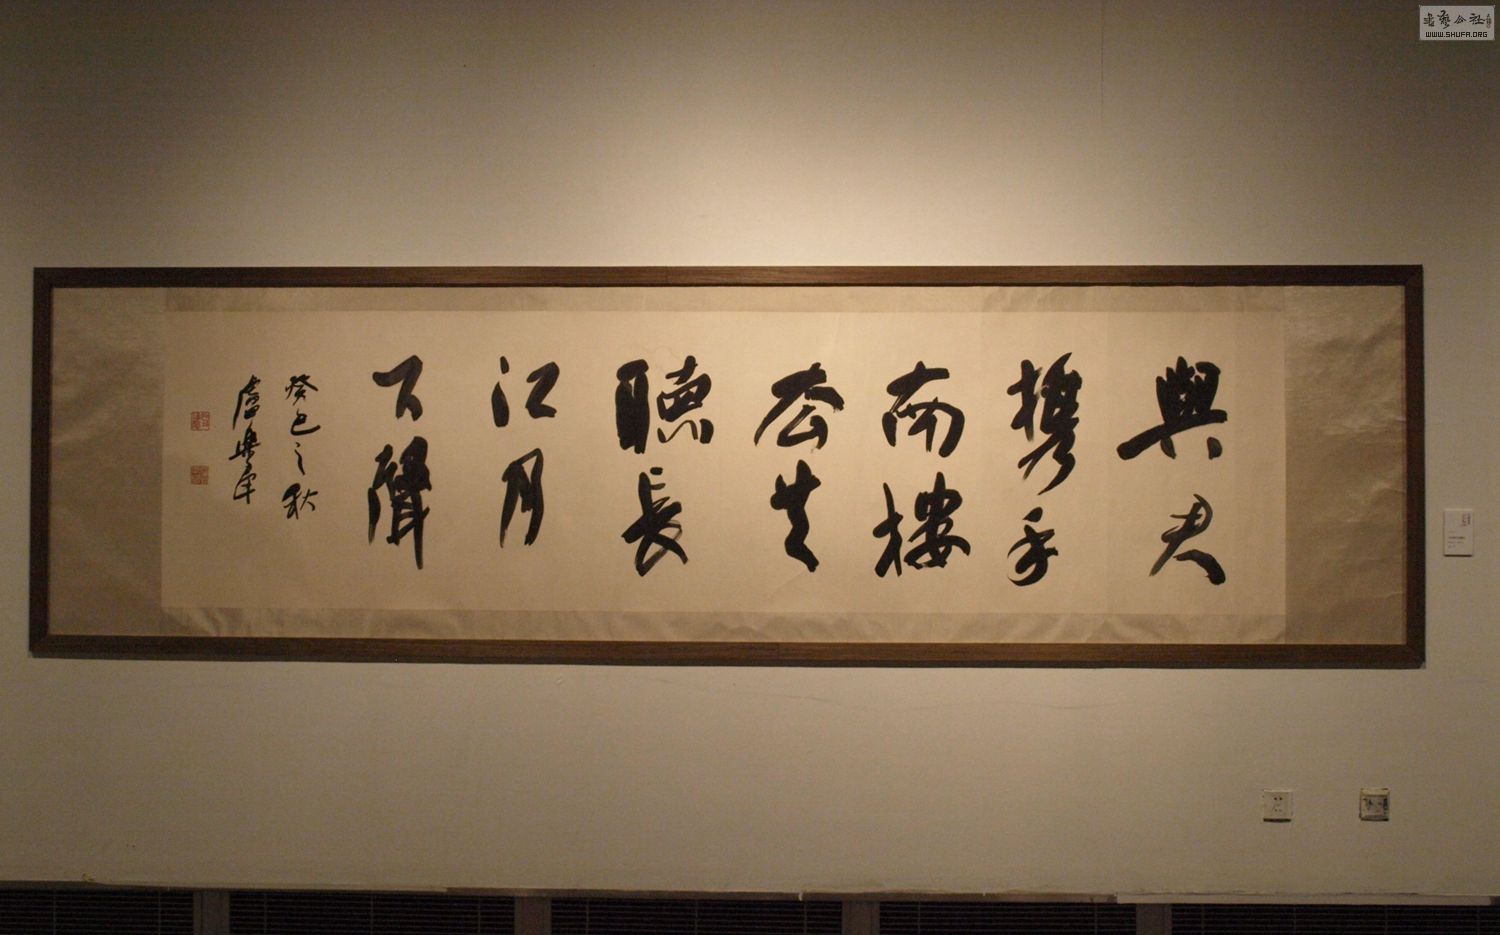 與君
携手
南樓
去共
聽長
江月
下聲
癸巳之秋
盧
書藝公社
WWW.SHUFA.ORG